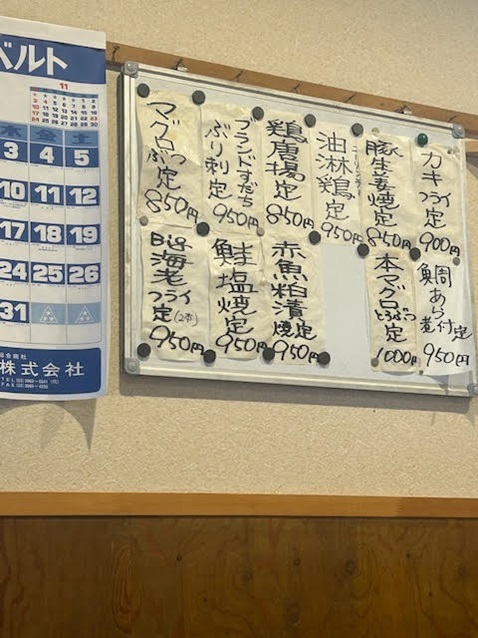 ベルト
11
木 金 土
3 4 5
10 11 12
17 18 19
24 25 26
31
株式会社
カキフライ定 900円
豚生姜焼定 850円
油淋鶏定 950円
鶏唐揚定 850円
ブランドすだちぶり刺定 950円
マグロぶつ定 850円
鯛あら煮付定 950円
本マグロとろぶつ定 1000円
赤魚粕漬焼定 950円
鮭塩焼定 950円
Big海老フライ定(2本) 950円